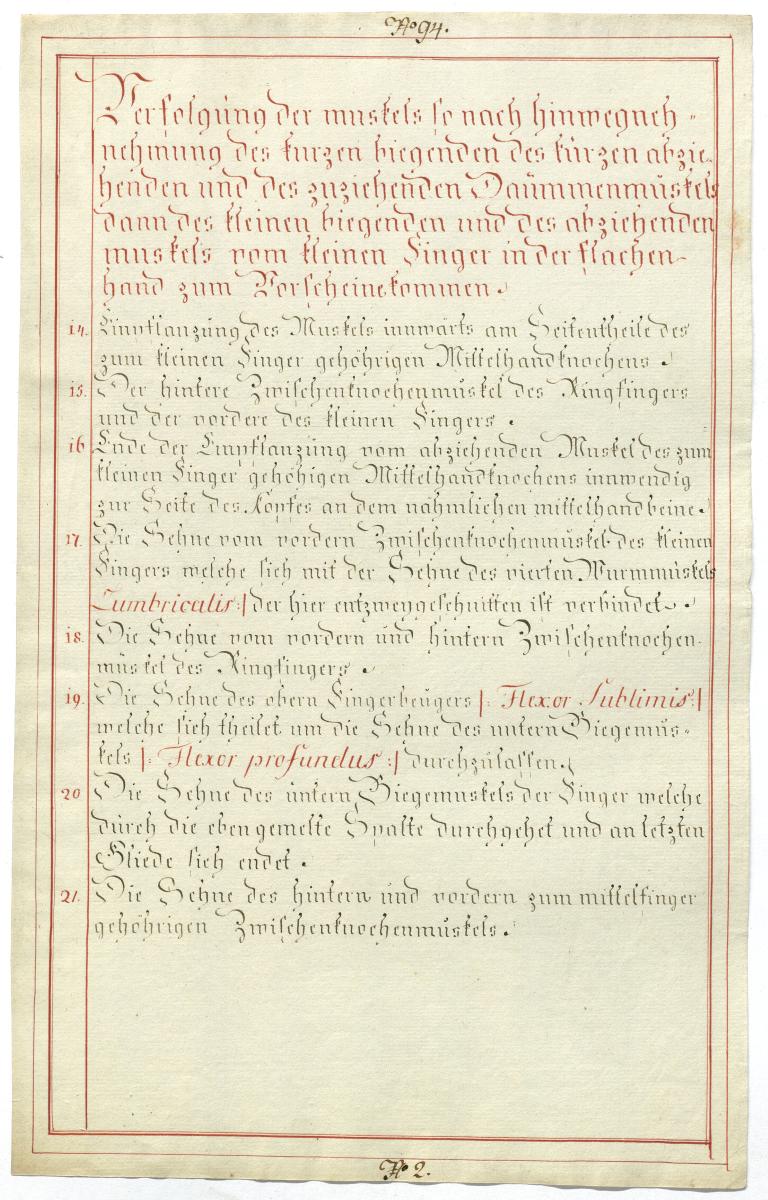 No 94.
Verfolgung der muskels so nach hinwegneh =
nehmung des kurzen biegenden des kürzen abzie-
henden und des zuziehenden Daümmenmüskels
dann des kleinen biegenden und des abziehenden
muskels vom kleinen Finger in der flachen-
hand zum Vorscheine kommen.
14. Einpflanzüng des Muskels innwärts am Seitentheile des
zum kleinen Finger gehöhrigen Mittelhandknochens.
15. Der hintere Zwischenknochenmüskel des Ringfingers
und der vordere des kleinen Fingers.
16 Ende der Einpflanzüng vom abziehenden Muskel des zum
kleinen Finger gehöhigen Mittelhandknochens innwendig
zur Seite des Kopfes an dem nähmlichen mittelhandbeine.
17. Die Sehne vom vordern Zwischenknochenmüskel des kleinen
Fingers welche sich mit der Sehne des vierten Wurmmüskels
Lumbricalis :| der hier entzweygeschnitten ist verbindet.
18. Die Sehne vom vordern und hintern Zwischenknochen-
müskel des Ringfingers.
19. Die Sehne des obern Fingerbeügers |: Flexor Sublimis :|
welche sich theilet um die Sehne des untern Biegemüs-
kels |: Flexor profundus :| durchzulassen.
20 Die Sehne des üntern Biegemuskels der Finger welche
dürch die eben gemelte Spalte durchgehet und an letzten
Gliede sich endet.
21. Die Sehne des hintern und vordern zum mittelfinger
gehöhrigen Zwischenknochenmüskels.
No 2.